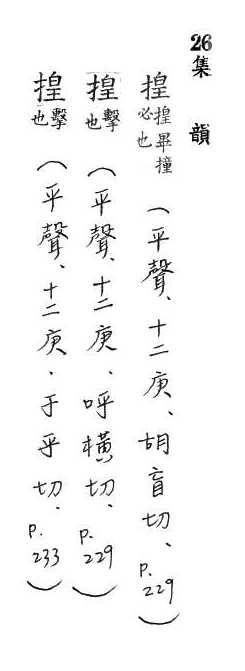 26集韻
揘 揘畢撞必也（平聲、十二庚、胡盲切、P.229）
揘 擊也（平聲、十二庚、呼橫切、P.229）
揘 擊也（平聲、十二庚、于平切、P.233）